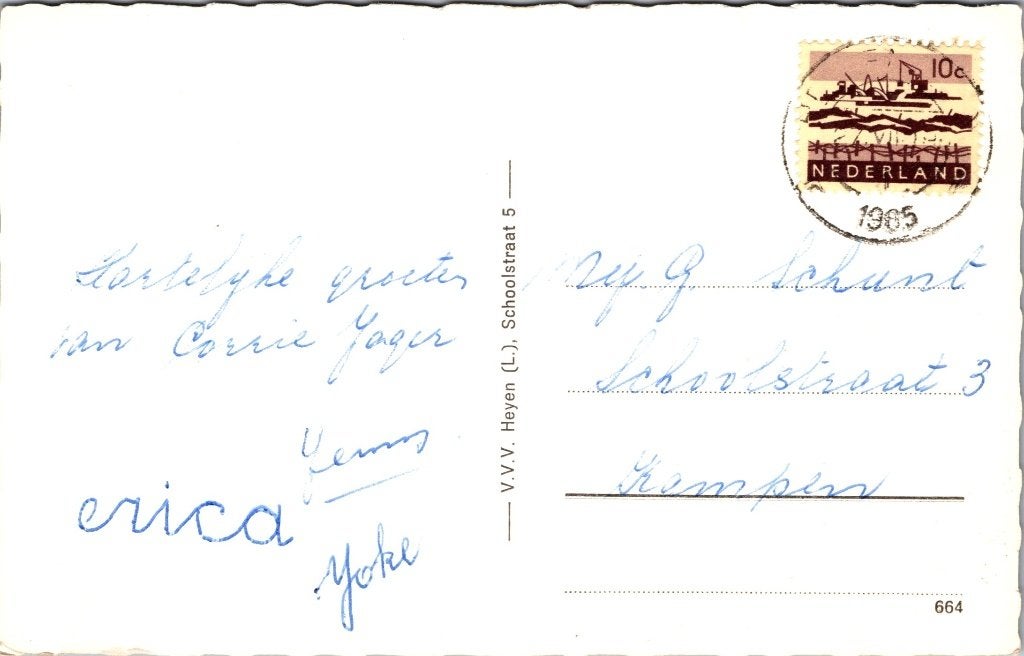 10c
NEDERLAND
1965
Hartelyke groeten
van Corrie Jager
erica
Yoke
V.V.V. Heyen (L.), Schoolstraat 5
Mej G. Schunt
Schoolstraat 3
Kampen
664